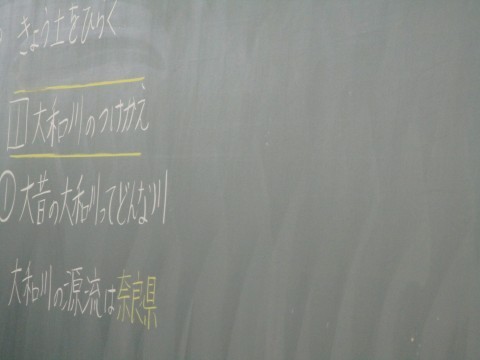 きょう土をひらく
1 大和川のつけかえ
① 大昔の大和川ってどんな川
大和川の源流は奈良県